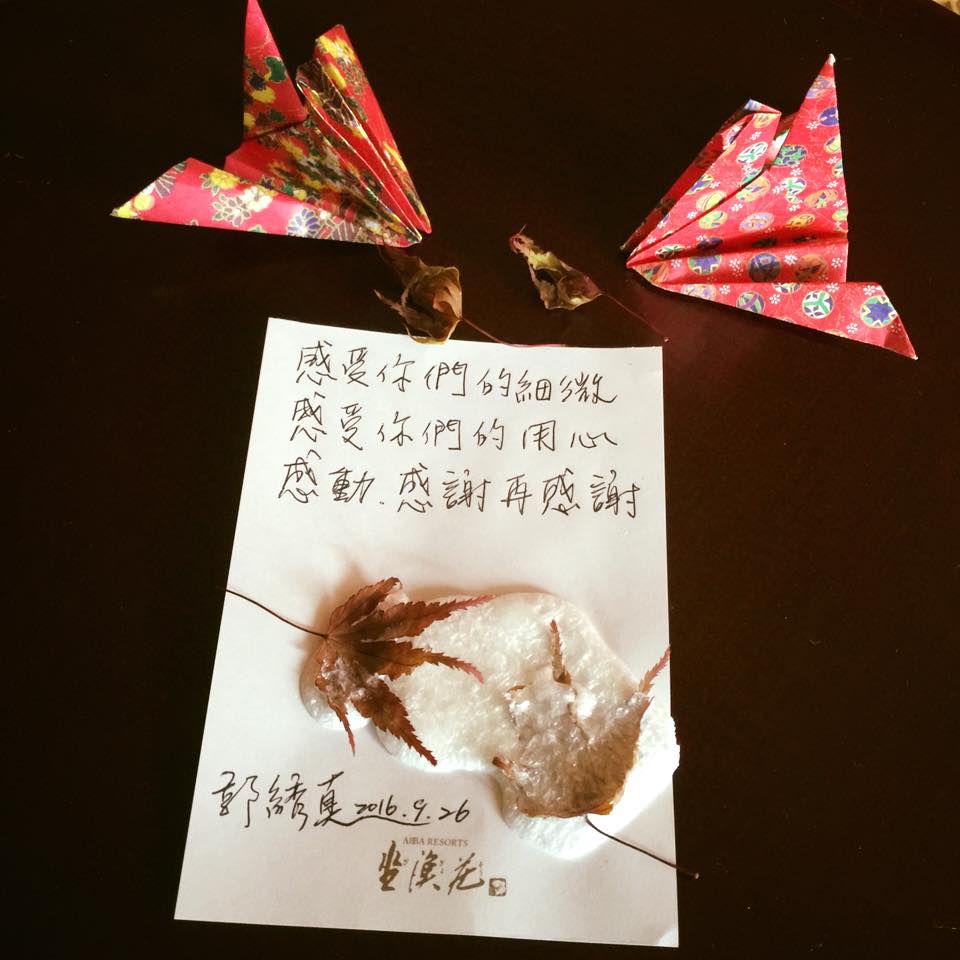 感受你們的細微
感受你們的用心
感動.感謝再感謝
郭綉真 2016.9.26
ABBA RESORTS
坐漁莊